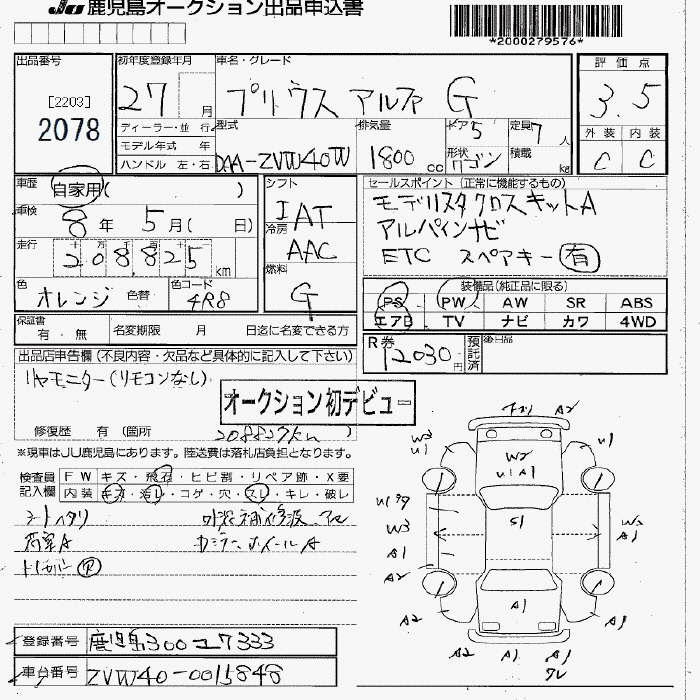 JU鹿児島オークション出品申込書
*2000279576*
出品番号
[2203]
2078
初年度登録年月
27 月
車名・グレード
プリウス アルファ G
評価点
3.5
外装 内装
C C
ディーラー・並行
モデル年式 年
ハンドル 左・右
型式
DAA-ZVW40W
排気量
1800 cc
ドア 5
形状 ワゴン
定員 7 人
積載 kg
車歴 自家用( )
車検 8年 5月( 日)
走行 十 万 千 百 十 一
208,825 km
色 オレンジ 色替
色コード 4R8
シフト IAT
冷房 AAC
燃料 G
セールスポイント (正常に機能するもの)
モデリスタクロスキットA
アルパインナビ
ETC スペアキー 有
装備品(純正品に限る)
PS PW AW SR ABS
エアB TV ナビ カワ 4WD
保証書 有・無
名変期限 月 日迄に名変できる方
R券 12030 円
預託済
後日品
出品店申告欄(不良内容・欠品など具体的に記入して下さい)
リヤモニター(リモコンなし)
オークション初デビュー
修復歴 有(箇所 )
※現車はJU鹿児島にあります。陸送費は落札店負担となります。
検査員記入欄
FW キズ・飛石・ヒビ割・リペア跡・X要
内装 キズ・汚レ・コゲ・穴・スレ・キレ・破レ
シートヘタリ
荷室A
カラー ホイールA
A2
W3
U1
W2
U1 A1
U1
W3
A1
S1
W2
A1
A2
A1
A2
A1
A2 A1 A1
ワレ
登録番号 鹿児島300ユ7333
車台番号 ZVW40-0015848